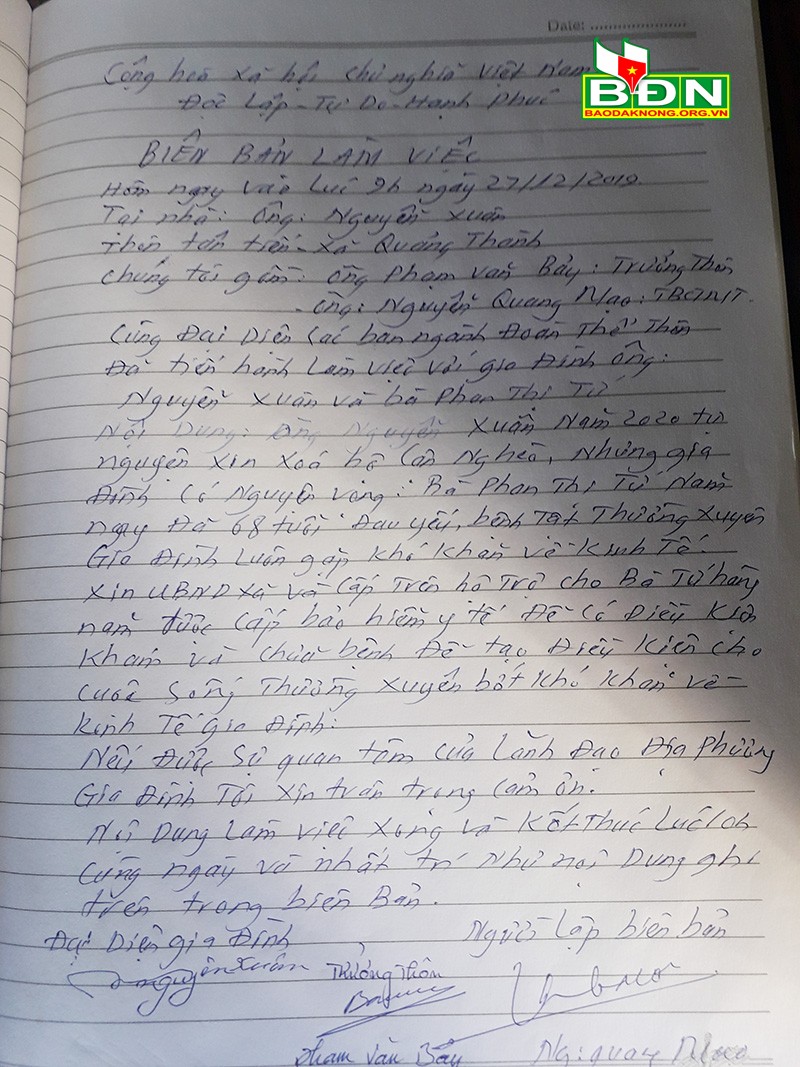 Date: ....................
BĐN
BAODAKNONG.ORG.VN
Cộng hoà xã hội chủ nghĩa Việt Nam
Độc Lập - Tự Do - Hạnh Phúc
BIÊN BẢN LÀM VIỆC
Hôm nay vào lúc 9h ngày 27/12/2019.
Tại nhà: Ông: Nguyễn Xuân
thôn tân tiến - Xã Quảng Thành
chúng tôi gồm: Ông Phạm Văn Bảy: Trưởng Thôn
- Ông: Nguyễn Quang : TBCTMT.
Cùng Đại Diện các ban ngành Đoàn Thể Thôn
Đã tiến hành làm việc với gia Đình ông:
Nguyễn Xuân và bà Phan Thị Tứ
Nội Dung: Ông Nguyễn Xuân Năm 2020 tự
nguyện xin xoá hộ Cận Nghèo, Nhưng gia
Đình có Nguyện vọng: Bà Phan Thị Tứ Năm
nay Đã 68 tuổi Đau yếu, bệnh Tật Thường Xuyên
Gia Đình luôn gặp khó khăn về Kinh Tế.
Xin UBND xã và cấp trên hỗ Trợ cho Bà Tứ hàng
năm được cấp bảo hiểm y tế Để có Điều Kiện
khám và chữa bệnh Để tạo Điều Kiện cho
cuộc sống Thường Xuyên bớt khó khăn về
kinh Tế gia Đình:
Nếu Được Sự quan tâm của Lãnh Đạo Địa phương
Gia Đình Tôi Xin trân trọng cảm ơn.
Nội Dung làm việc xong và kết thúc lúc 10h
cùng ngày và nhất trí Như nội Dung ghi
trên trong biên Bản.
Đại Diện gia Đình
Người lập biên bản
Nguyễn Xuân
Trưởng Thôn
Phạm Văn Bảy
Ng: quang